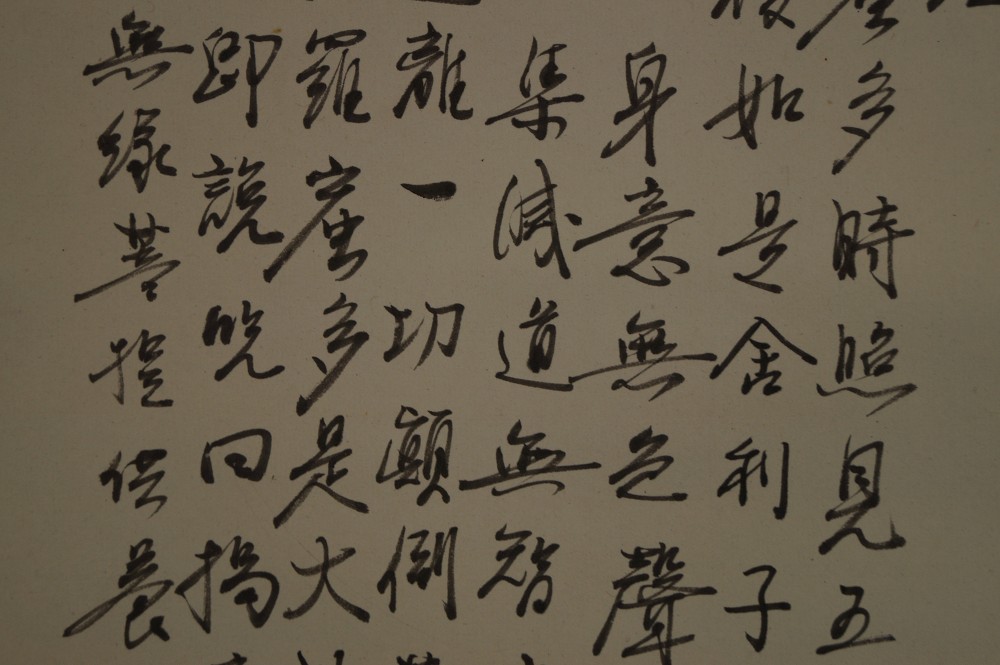 多時照見五
如是舍利子
身意無色聲
集滅道無智
離一切顛倒
羅蜜多是大
即說咒曰揭
無緣菩提供養